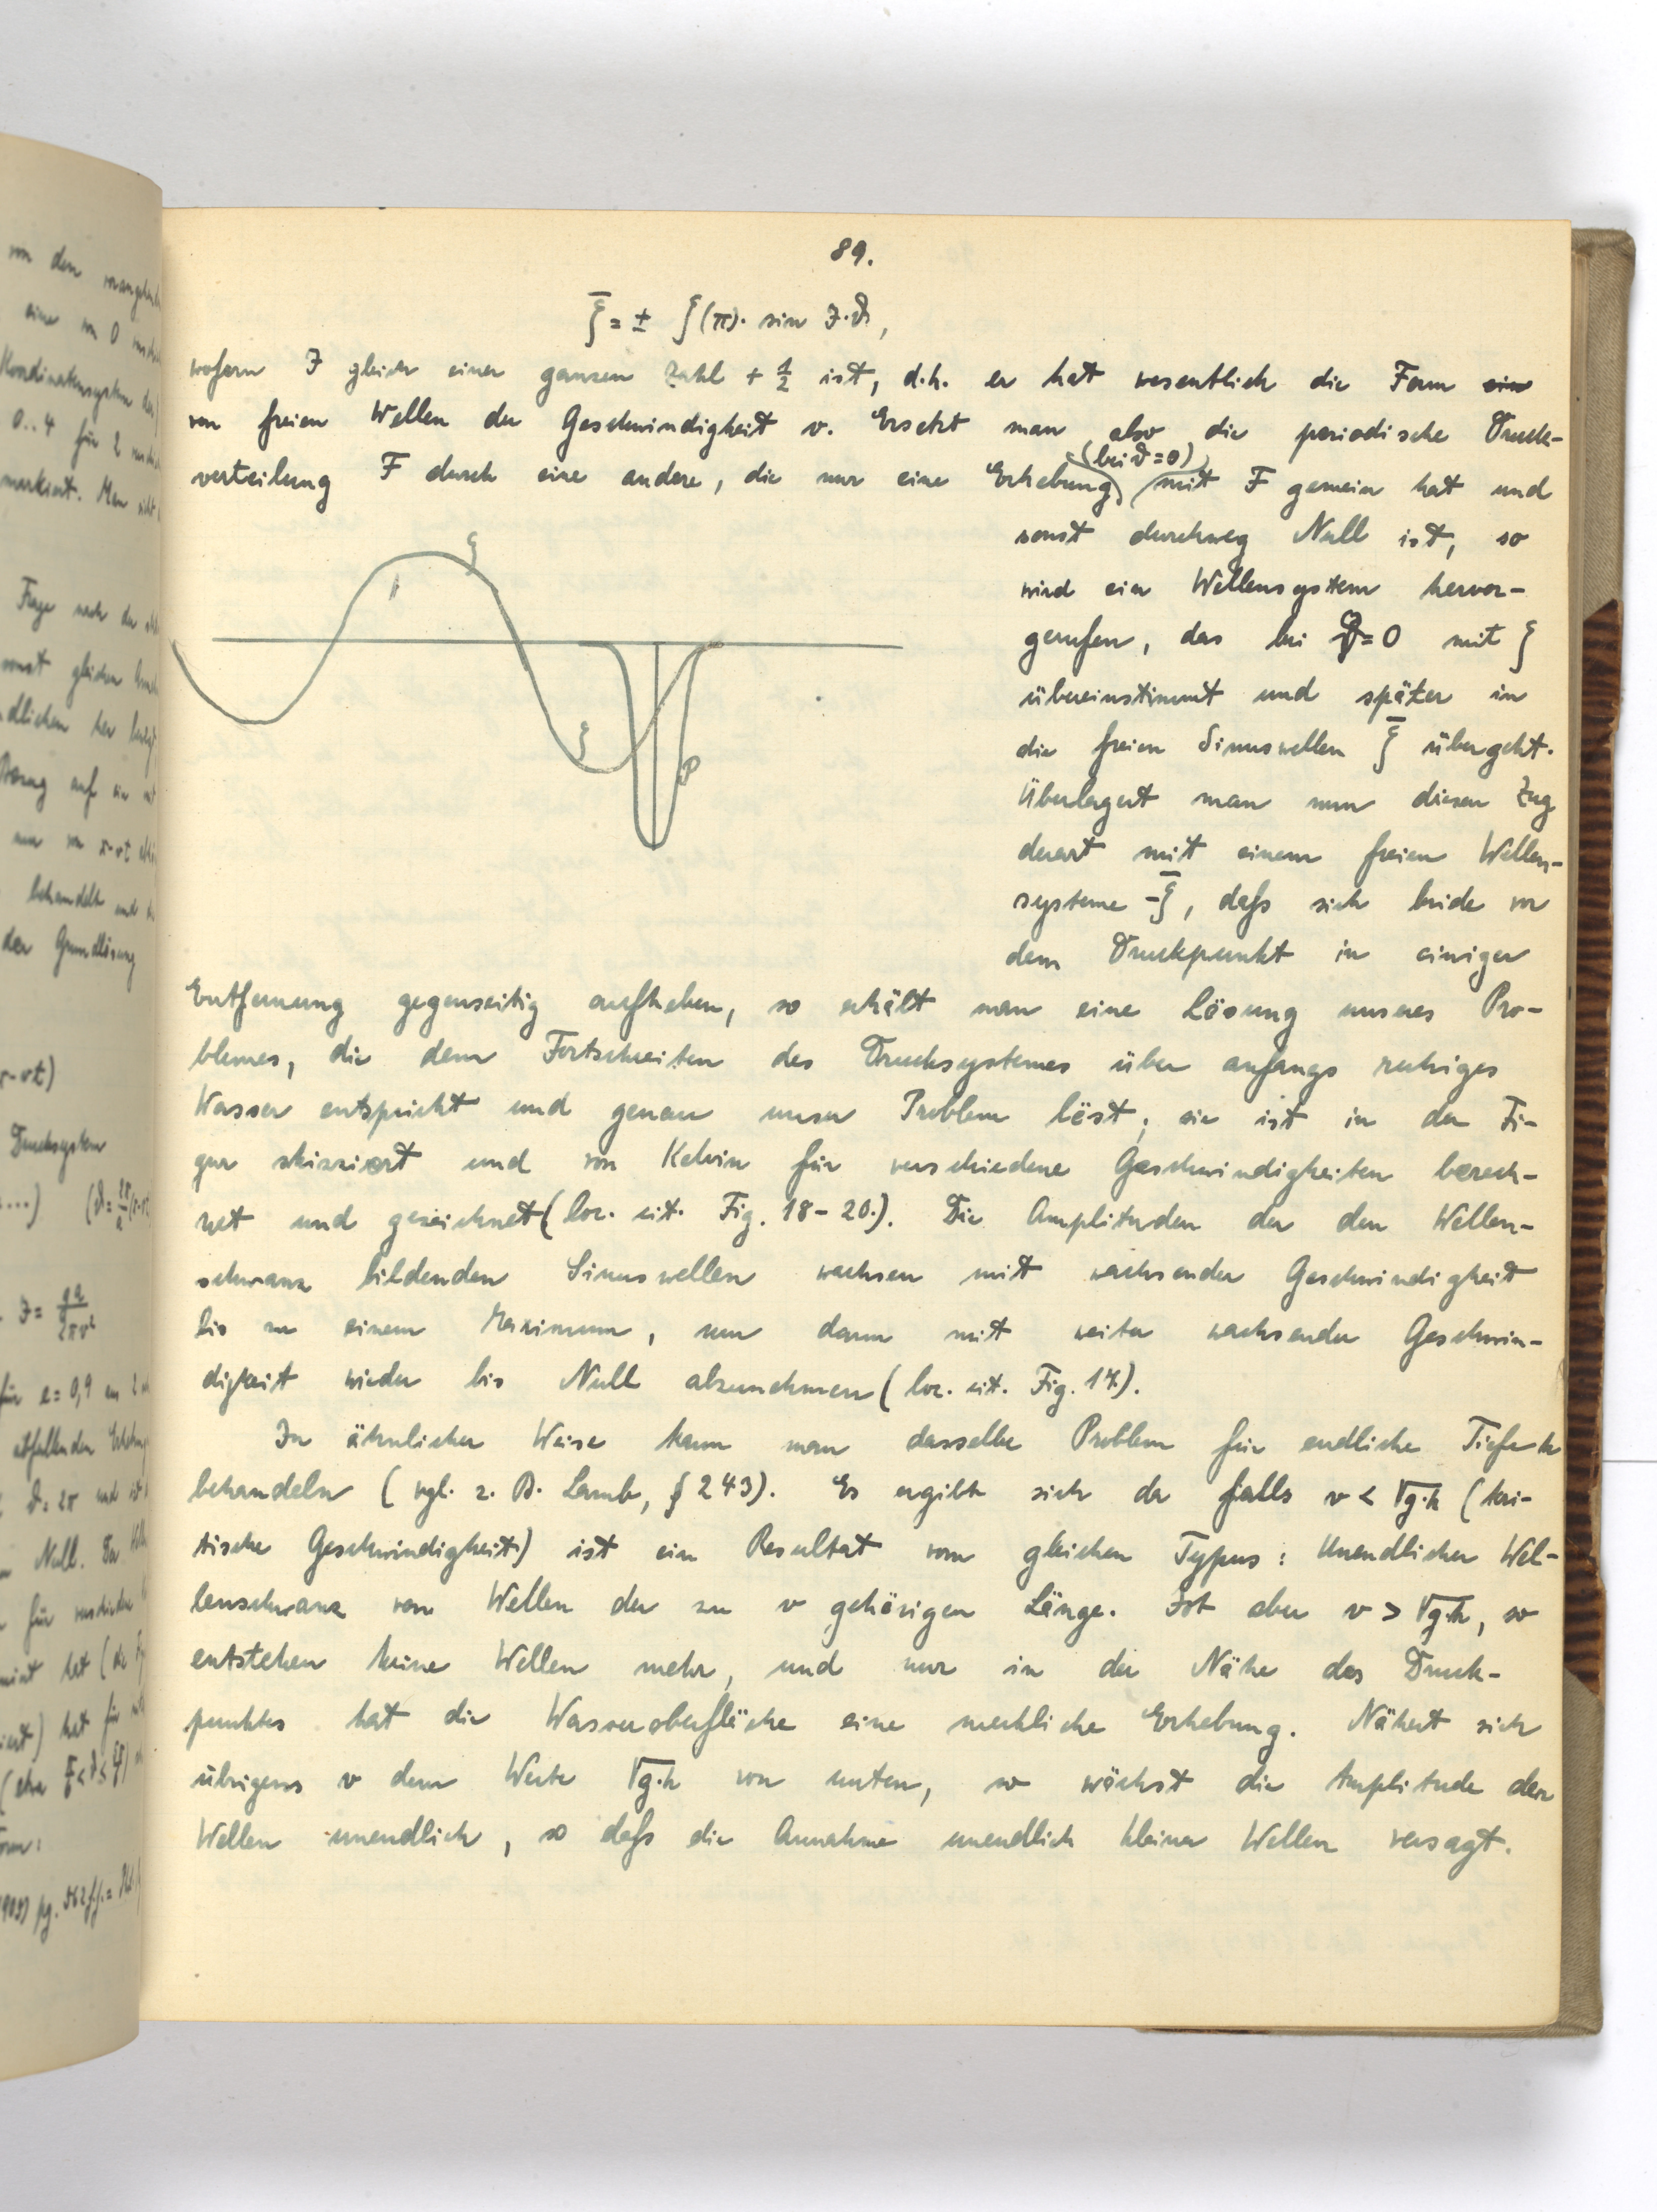 89.
ξ̄ = ± ξ(π)· sin J·ϑ,
wofern J gleich einer ganzen Zahl + 1/2 ist, d.h. er hat wesentlich die Form
von freien Wellen der Geschwindigkeit v. Ersetzt man also die periodische Druck-
verteilung F durch eine andere, die nur eine Erhebung (bei ϑ=0) mit F gemein hat und
sonst durchweg Null ist, so
wird ein Wellensystem hervor-
gerufen, das bei ϑ=0 mit ξ
übereinstimmt und später in
die freien Sinuswellen ξ̄ übergeht.
Überlagert man nun diesen Zug
derart mit einem freien Wellen-
systeme -ξ̄, daſs sich beide vor
dem Druckpunkt in einiger
ξ
ξ
P
Entfernung gegenseitig aufheben, so erhält man eine Lösung unseres Pro-
blemes, die dem Fortschreiten des Drucksystemes über anfangs ruhiges
Wasser entspricht und genau unser Problem löst; sie ist in der Fi-
gur skizziert und von Kelvin für verschiedene Geschwindigkeiten berech-
net und gezeichnet (loc. cit. Fig. 18-20.). Die Amplituden der den Wellen-
schwanz bildenden Sinuswellen wachsen mit wachsender Geschwindigkeit
bis zu einem Maximum, um dann mit weiter wachsender Geschwin-
digkeit wieder bis Null abzunehmen (loc. cit. Fig. 17.).
In ähnlicher Weise kann man dasselbe Problem für endliche Tiefe h
behandeln (vgl. z. B. Lamb, § 243). Es ergibt sich da falls v < √g·h (kri-
tische Geschwindigkeit) ist ein Resultat vom gleichen Typus: Unendlicher Wel-
lenschwanz von Wellen der zu v gehörigen Länge. Ist aber v > √g·h, so
entstehen keine Wellen mehr, und nur in der Nähe des Druck-
punktes hat die Wasseroberfläche eine merkliche Erhebung. Nähert sich
übrigens v dem Werte √g·h von unten, so wächst die Amplitude der
Wellen unendlich, so daſs die Annahme unendlich kleiner Wellen versagt.